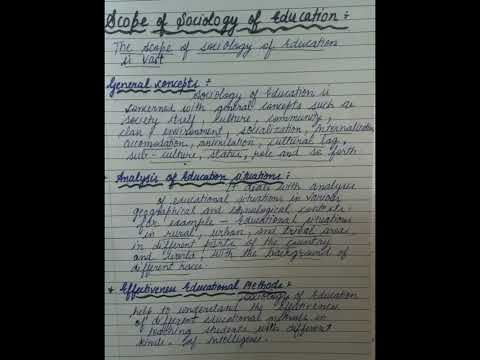 Scope of Sociology of Education :-
The scope of sociology of Education
is vast
General concepts :-
Sociology of Education is
concerned with general concepts such as
society itself, culture, community,
class, environment, socialization, internalization,
accomodation, assimilation, cultural lag,
sub-culture, status, role and so forth
Analysis of Education situations :-
It deals with analysis
of educational situations in various
geographical and ethnological contexts.
for example - Educational situations
in rural, urban, and tribal areas,
in different parts of the country
and world, with the background of
different races.
* Effectiveness Educational Methods :-
Sociology of Education
help to understand the effectiveness
of different educational methods in
teaching students with different
kinds of intelligence.